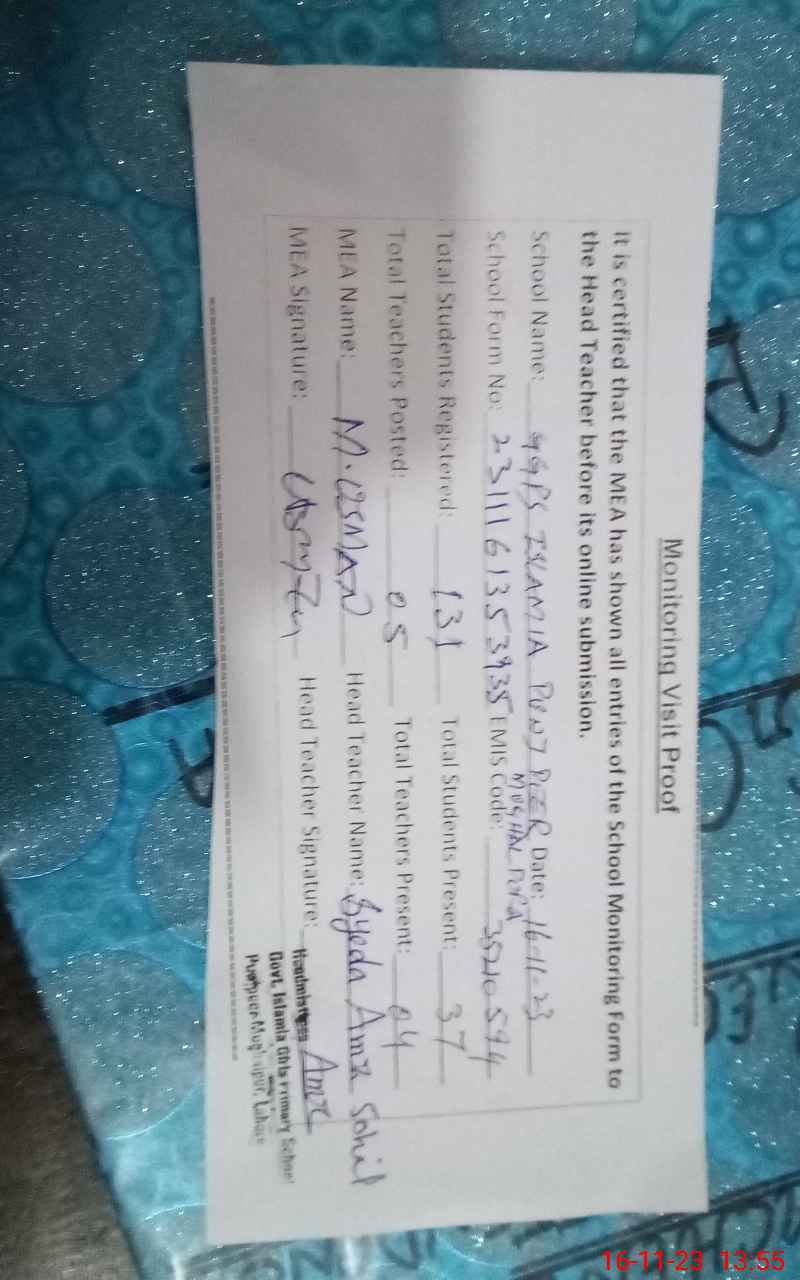 Monitoring Visit Proof
It is certified that the MEA has shown all entries of the School Monitoring Form to
the Head Teacher before its online submission.
School Name: GGPS ISLAMIA PUNJ PEER Date: 16-11-23
MUGHAL PURA
School Form No: 2311161353935 EMIS Code: 35210594
Total Students Registered: 131 Total Students Present: 37
Total Teachers Posted: 05 Total Teachers Present: 04
MEA Name: M. USMAN Head Teacher Name: Syeda Amx Sohil
MEA Signature: Head Teacher Signature:
Headmistress
Govt. Islamia Girls Primary School
Lahore
16-11-23 13:55